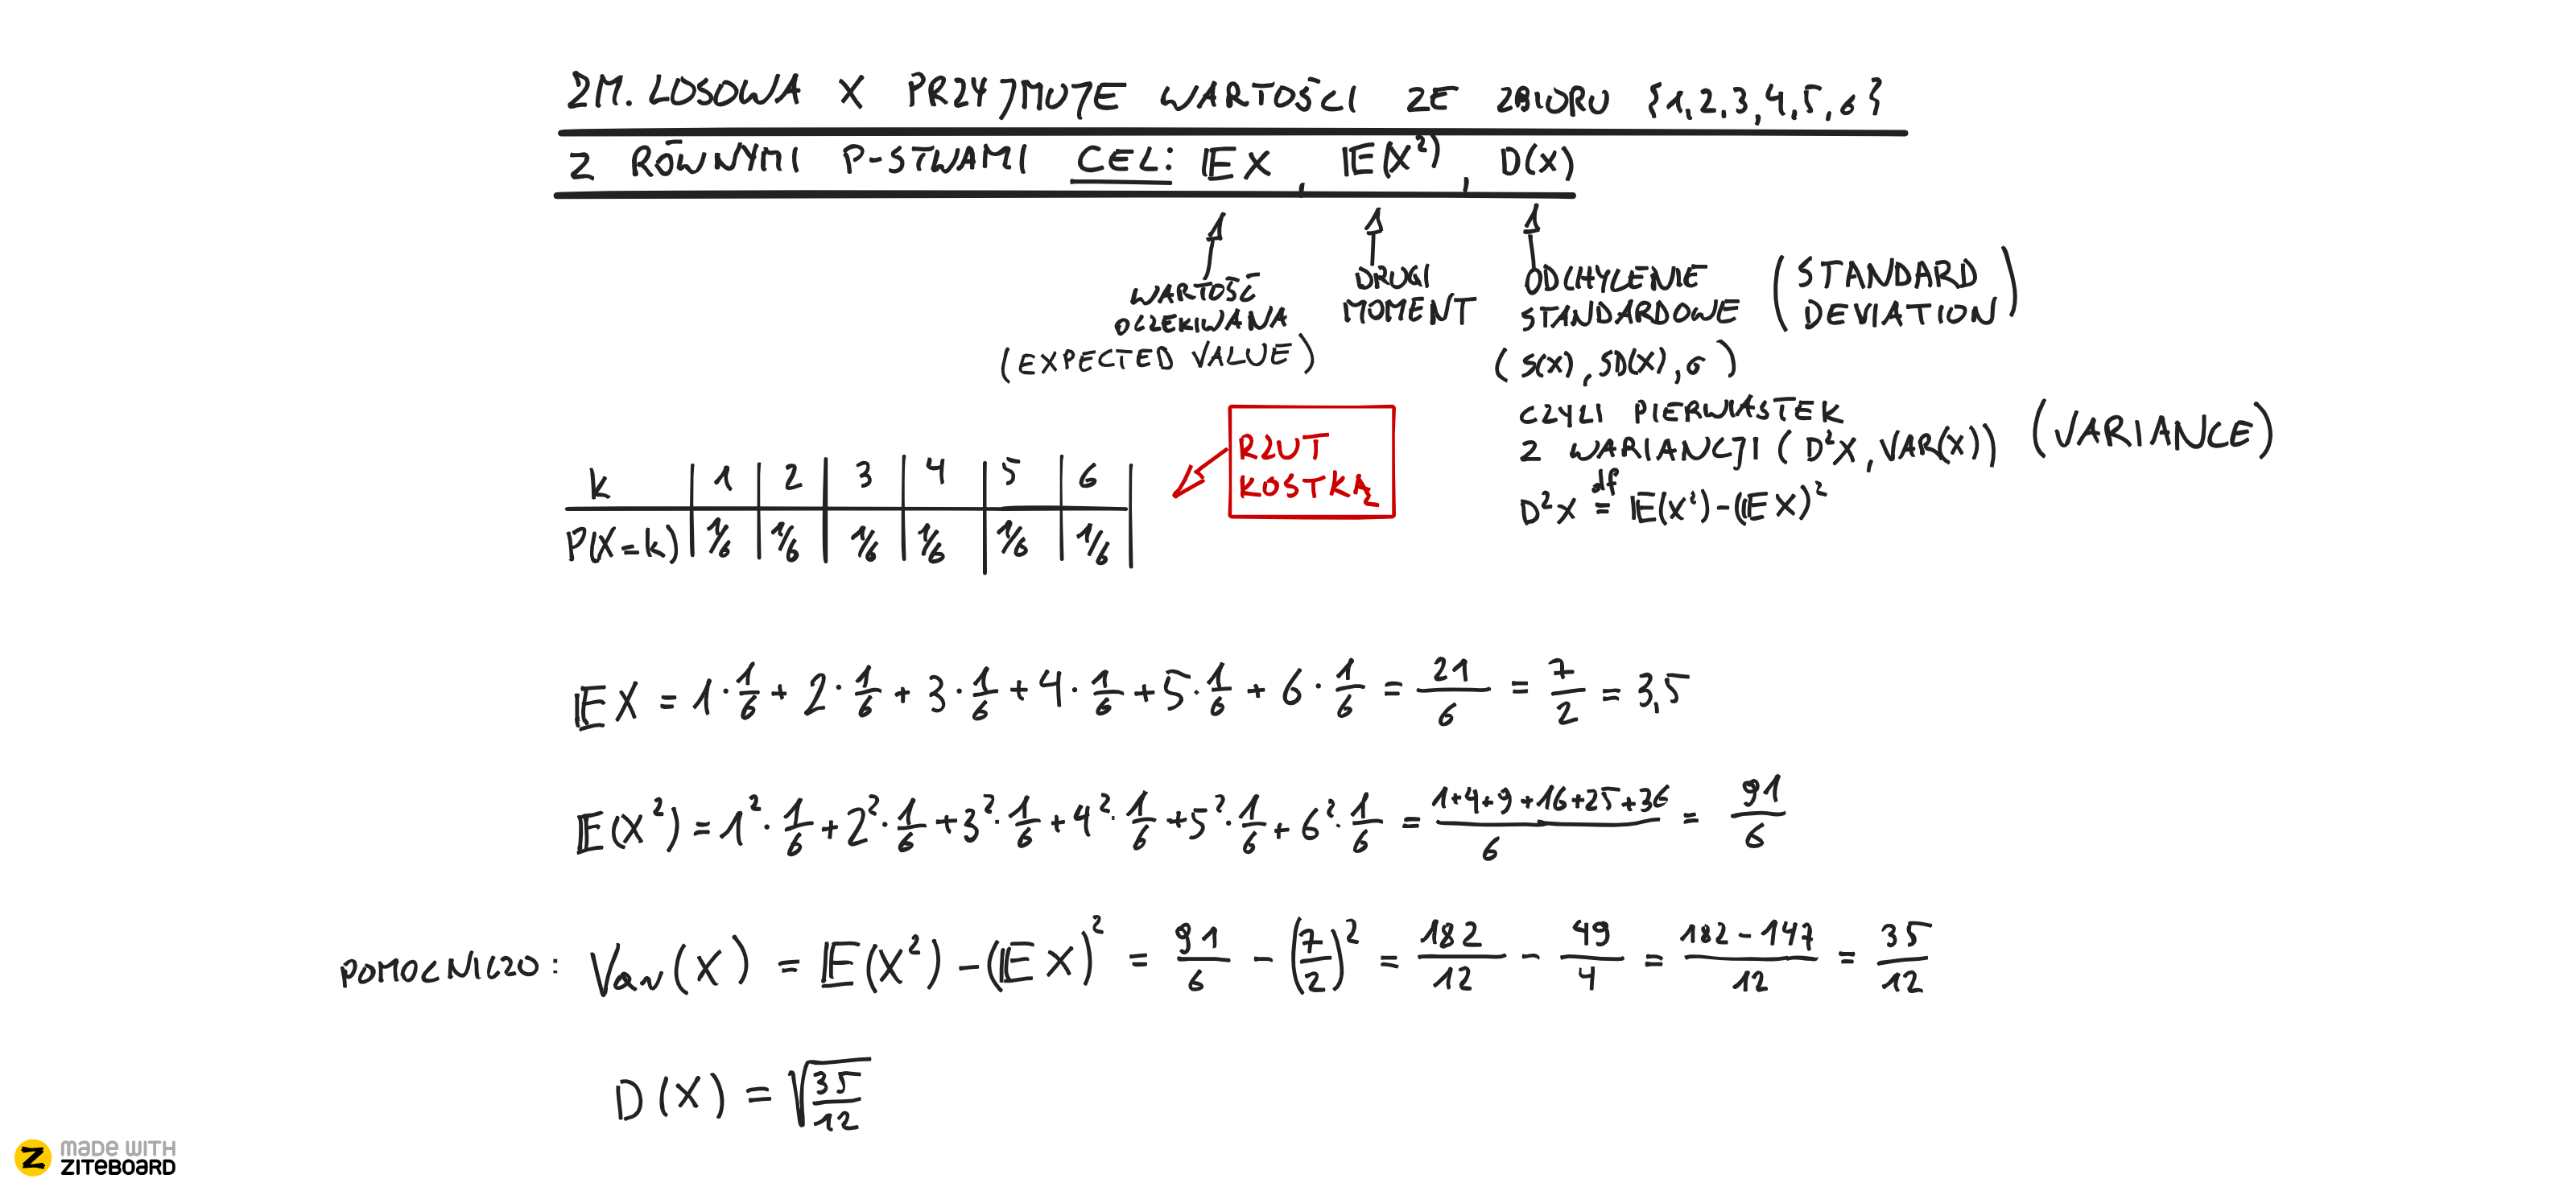 ZM. LOSOWA X PRZYJMUJE WARTOŚCI ZE ZBIORU {1,2,3,4,5,6}
Z RÓWNYMI P-STWAMI CEL: EX, E(X²), D(X)
WARTOŚĆ
OCZEKIWANA
(EXPECTED VALUE)
DRUGI
MOMENT
ODCHYLENIE
STANDARDOWE
(STANDARD
DEVIATION)
(S(X), SD(X), σ)
CZYLI PIERWIASTEK
Z WARIANCJI (D²X, VAR(X)) (VARIANCE)
D²X df= E(X²)-(EX)²
RZUT
KOSTKĄ
k 1 2 3 4 5 6
P(X=k) 1/6 1/6 1/6 1/6 1/6 1/6
EX = 1·1/6 + 2·1/6 + 3·1/6 + 4·1/6 + 5·1/6 + 6·1/6 = 21/6 = 7/2 = 3,5
E(X²) = 1²·1/6 + 2²·1/6 + 3²·1/6 + 4²·1/6 + 5²·1/6 + 6²·1/6 = (1+4+9+16+25+36)/6 = 91/6
POMOCNICZO: Var(X) = E(X²) - (EX)² = 91/6 - (7/2)² = 182/12 - 49/4 = (182-147)/12 = 35/12
D(X) = √(35/12)
MADE WITH
ZITEBOARD